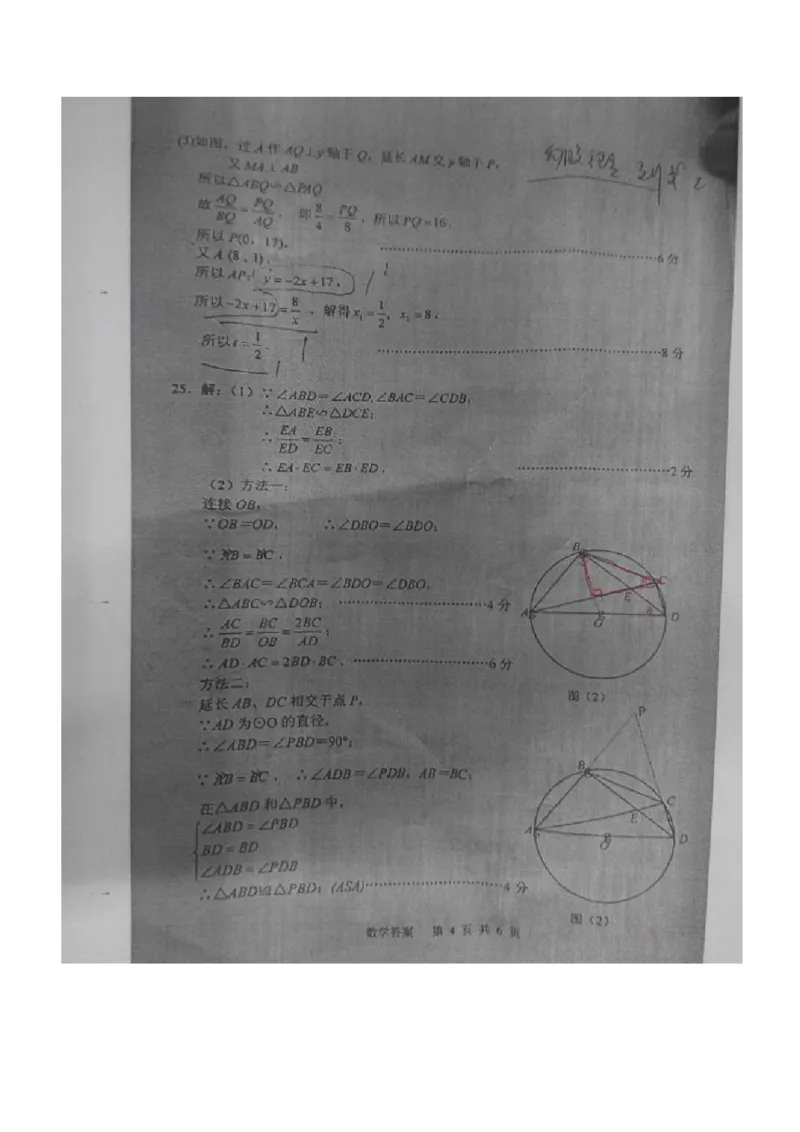 (3)如图，过 A 作 AQ⊥y 轴于 Q，延长 AM 交 y 轴于 P，
又 MA⊥AB
所以△ABQ∽△PAQ
故 AQ/BQ = PQ/AQ ， 即 8/4 = PQ/8 ，所以 PQ=16．
所以 P(0，17)， ……6 分
又 A (8、1)，
所以 AP： y=-2x+17，
所以 -2x+17 = 8/x ，解得 x₁ = 1/2 ，x₂ = 8，
所以 t = 1/2． ……8 分
25．解：（1）∵∠ABD=∠ACD,∠BAC=∠CDB；
∴△ABE∽△DCE；
∴ EA/ED = EB/EC ；
∴ EA·EC = EB·ED． ……2 分
（2）方法一：
连接 OB，
∵OB=OD， ∴∠DBO=∠BDO；
∵ AB = BC ．
∴∠BAC=∠BCA=∠BDO=∠DBO．
∴△ABC∽△DOB； ……4 分
∴ AC/BD = BC/OB = 2BC/AD ；
∴ AD·AC = 2BD·BC． ……6 分
B
C
E
A
O
D
图（2）
方法二：
延长 AB、DC 相交于点 P，
∵AD 为⊙O 的直径，
∴∠ABD=∠PBD=90°；
∵ AB = BC ． ∴∠ADB=∠PDB；AB=BC；
在△ABD 和△PBD 中，
∠ABD = ∠PBD
BD = BD
∠ADB = ∠PDB
∴△ABD≌△PBD；(ASA) ……4 分
P
B
C
E
A
O
D
图（2）
数学答案 第 4 页 共 6 页